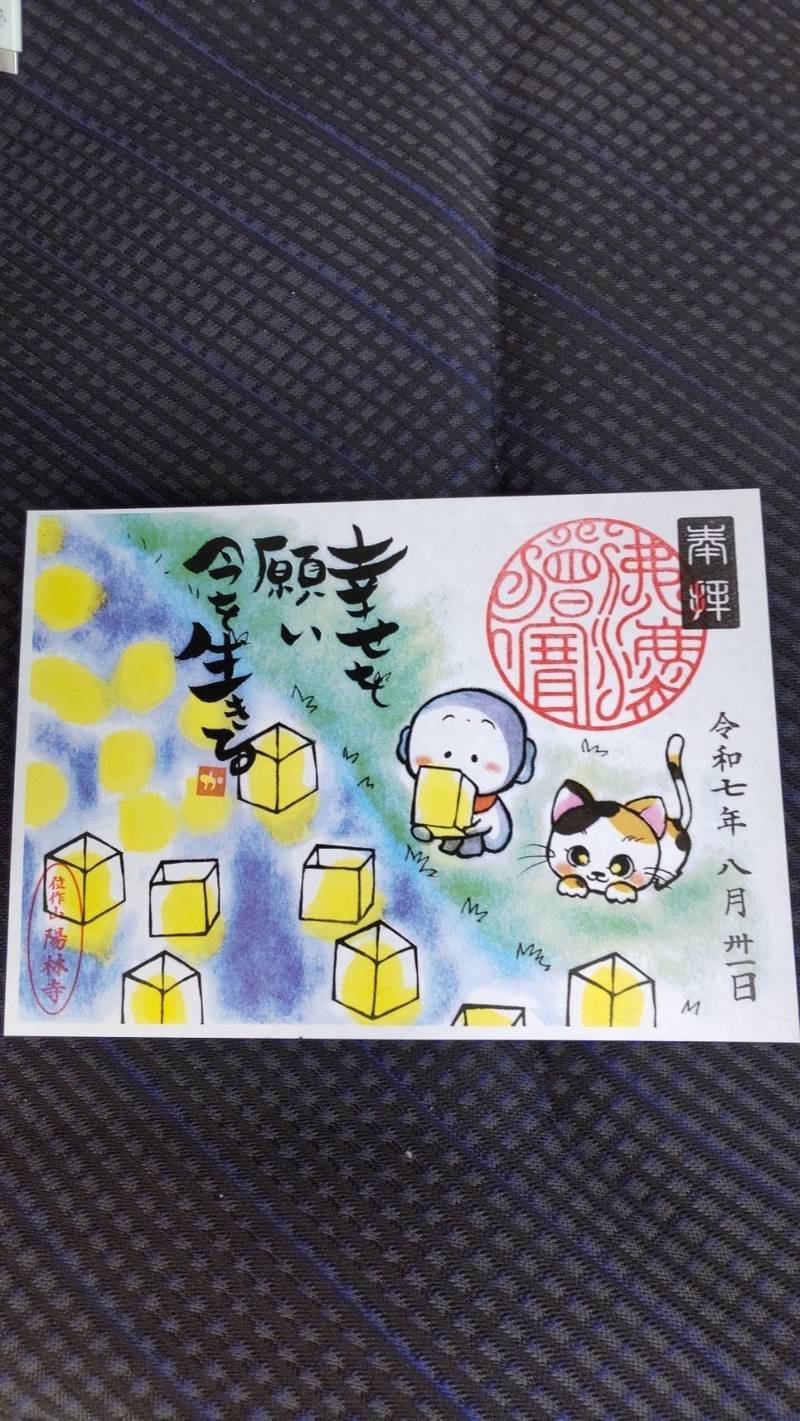 奉拝
佛法僧寶
令和七年 八月 卅一日
幸せを
願い
今を生きる
か
位作山 陽林寺